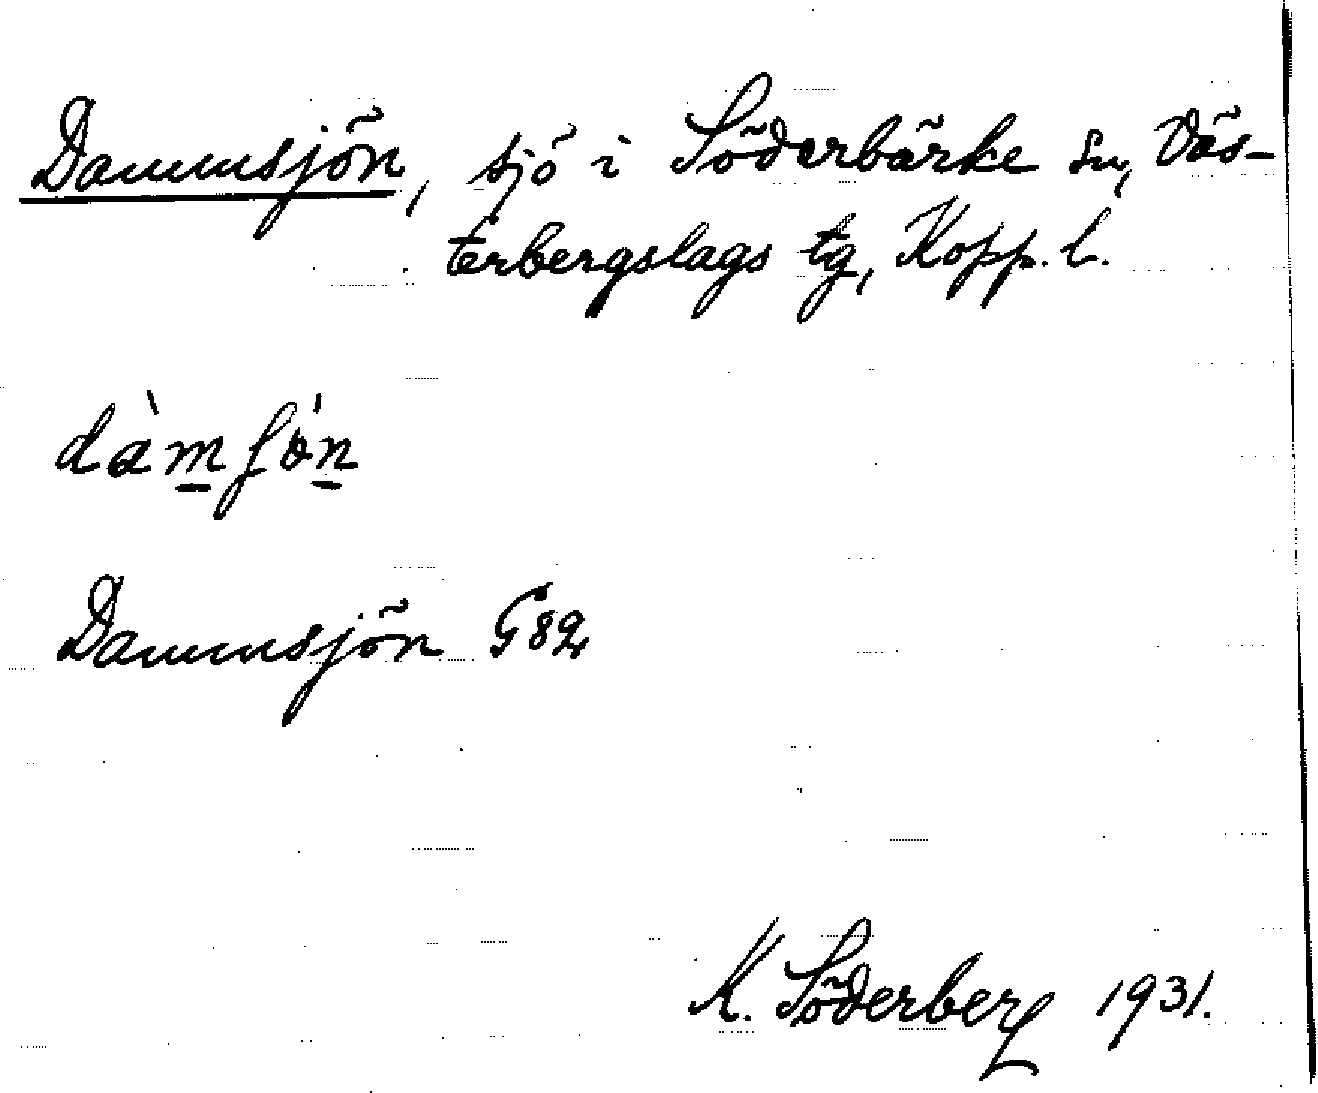 Dammsjön, sjö i Söderbärke sn, Väs-
terbergslags tg, Kopp. l.
dàm̲ʃö̀n̲
Dammsjön G82
K. Söderberg 1931.